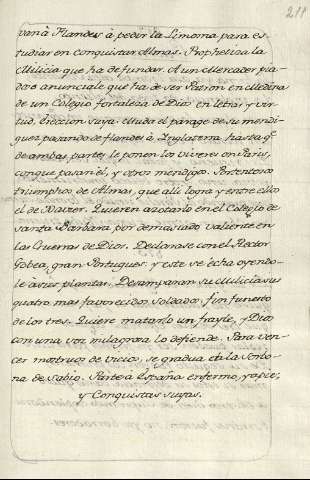 211
van à Flandes à pedir la Limosna para es-
tudiar en conquistar Almas. Prophetiza la
Milicia que ha de fundar. A un Mercader pia-
doso anunciale que ha de ser Patron en Medina
de un Colegio, fortaleza de Dios en letras y vir-
tud, ereccion suya. Muda el parage de su mendi-
guez pasando de flandes à Inglaterra hasta q.e
de ambas partes le ponen los viveres en Paris,
con que pasan èl, y otros mendigos. Portentosos
triumphos de Almas, que alli logra y entre ellos
el de Xavier. Quieren azotarlo en el Colegio de
Santa Barbara por demasiado valiente en
las Guerras de Dios. Declarase con el Rector
Gobea, gran Portugues. y este se echa oyendo-
le à sus plantas. Desamparan su Milicia sus
quatro mas favorecidos Soldados, fin funesto
de los tres. Quiere matarlo un frayle, y Dios
con una voz milagrosa lo defiende. Para ven-
cer mostruos de vicios, se gradua en la Sorbo-
na de Sabio. Parte à España enfermo, y à pie;
y Conquistas suyas.